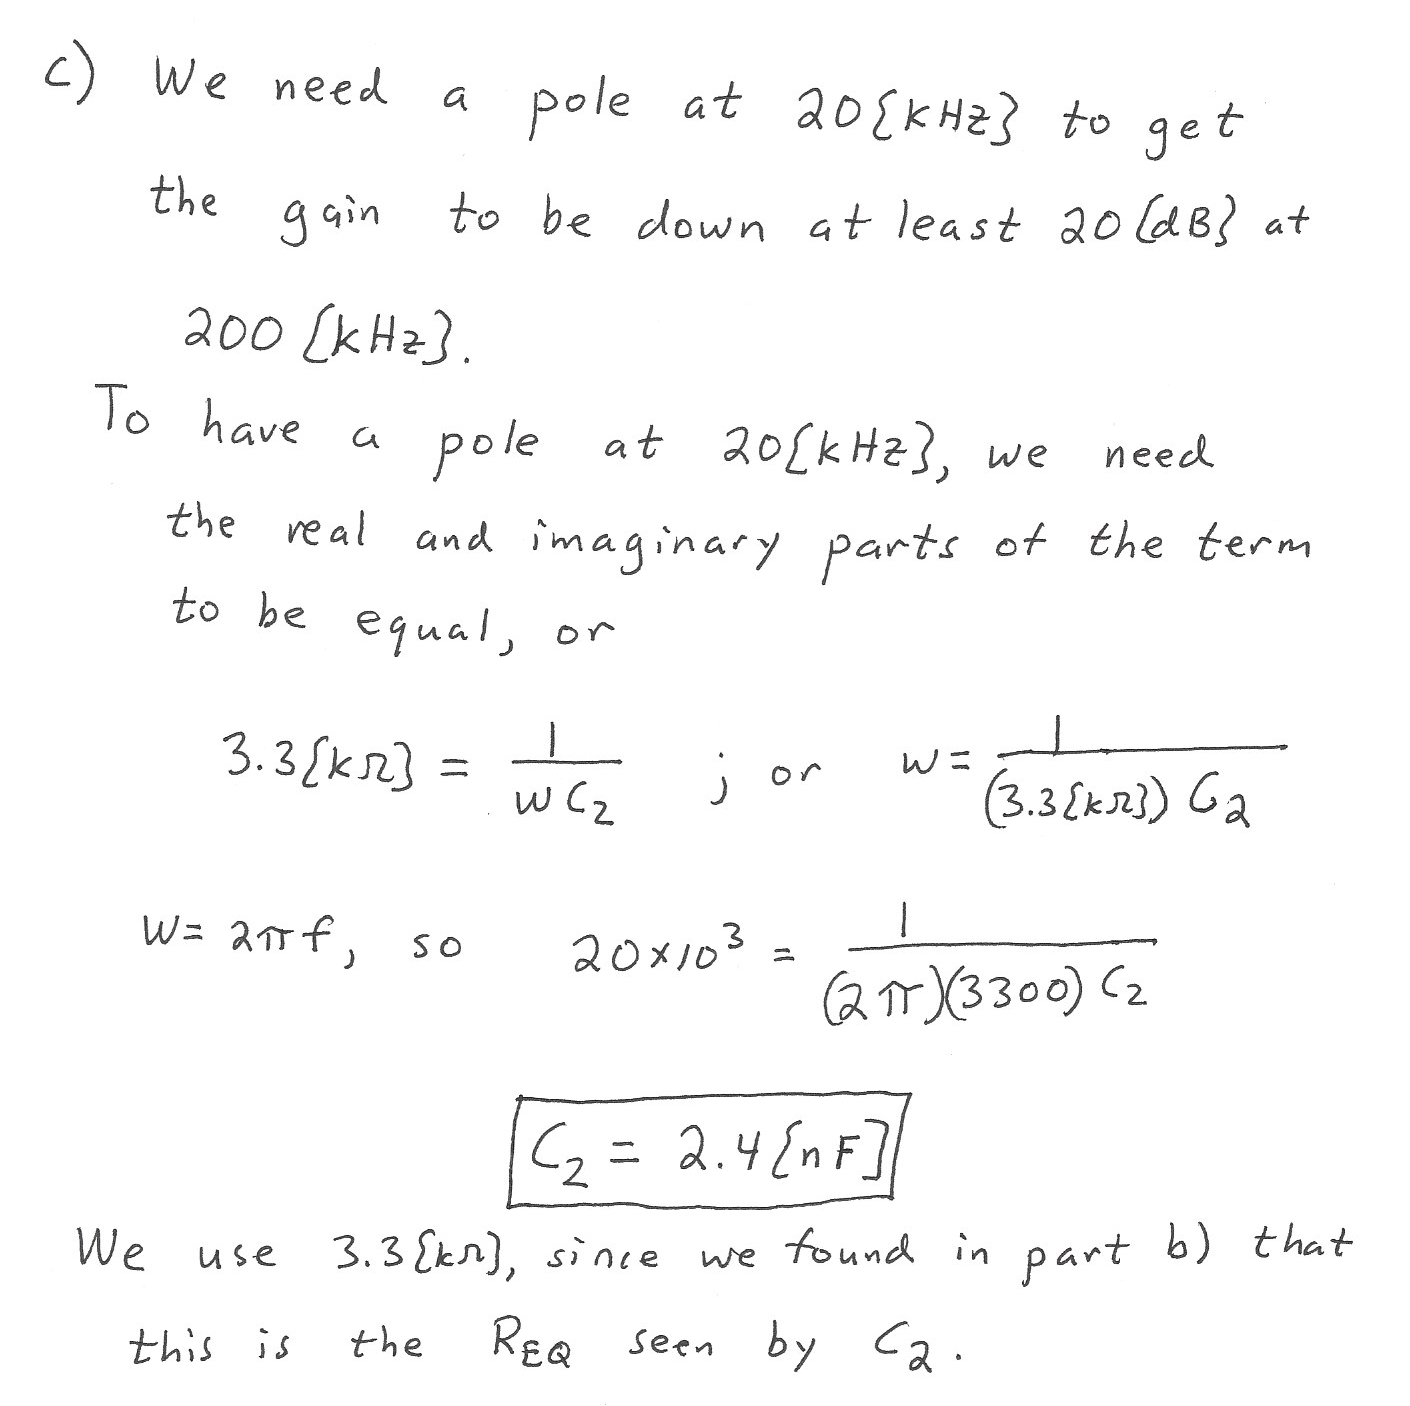 c) We need a pole at 20[kHz] to get
the gain to be down at least 20[dB] at
200 [kHz].
To have a pole at 20[kHz], we need
the real and imaginary parts of the term
to be equal, or
3.3[kΩ] = 1/(wC₂) ; or w = 1/((3.3[kΩ]) C₂)
w = 2πf, so 20×10³ = 1/((2π)(3300) C₂)
C₂ = 2.4[nF]
We use 3.3[kΩ], since we found in part b) that
this is the R_EQ seen by C₂.